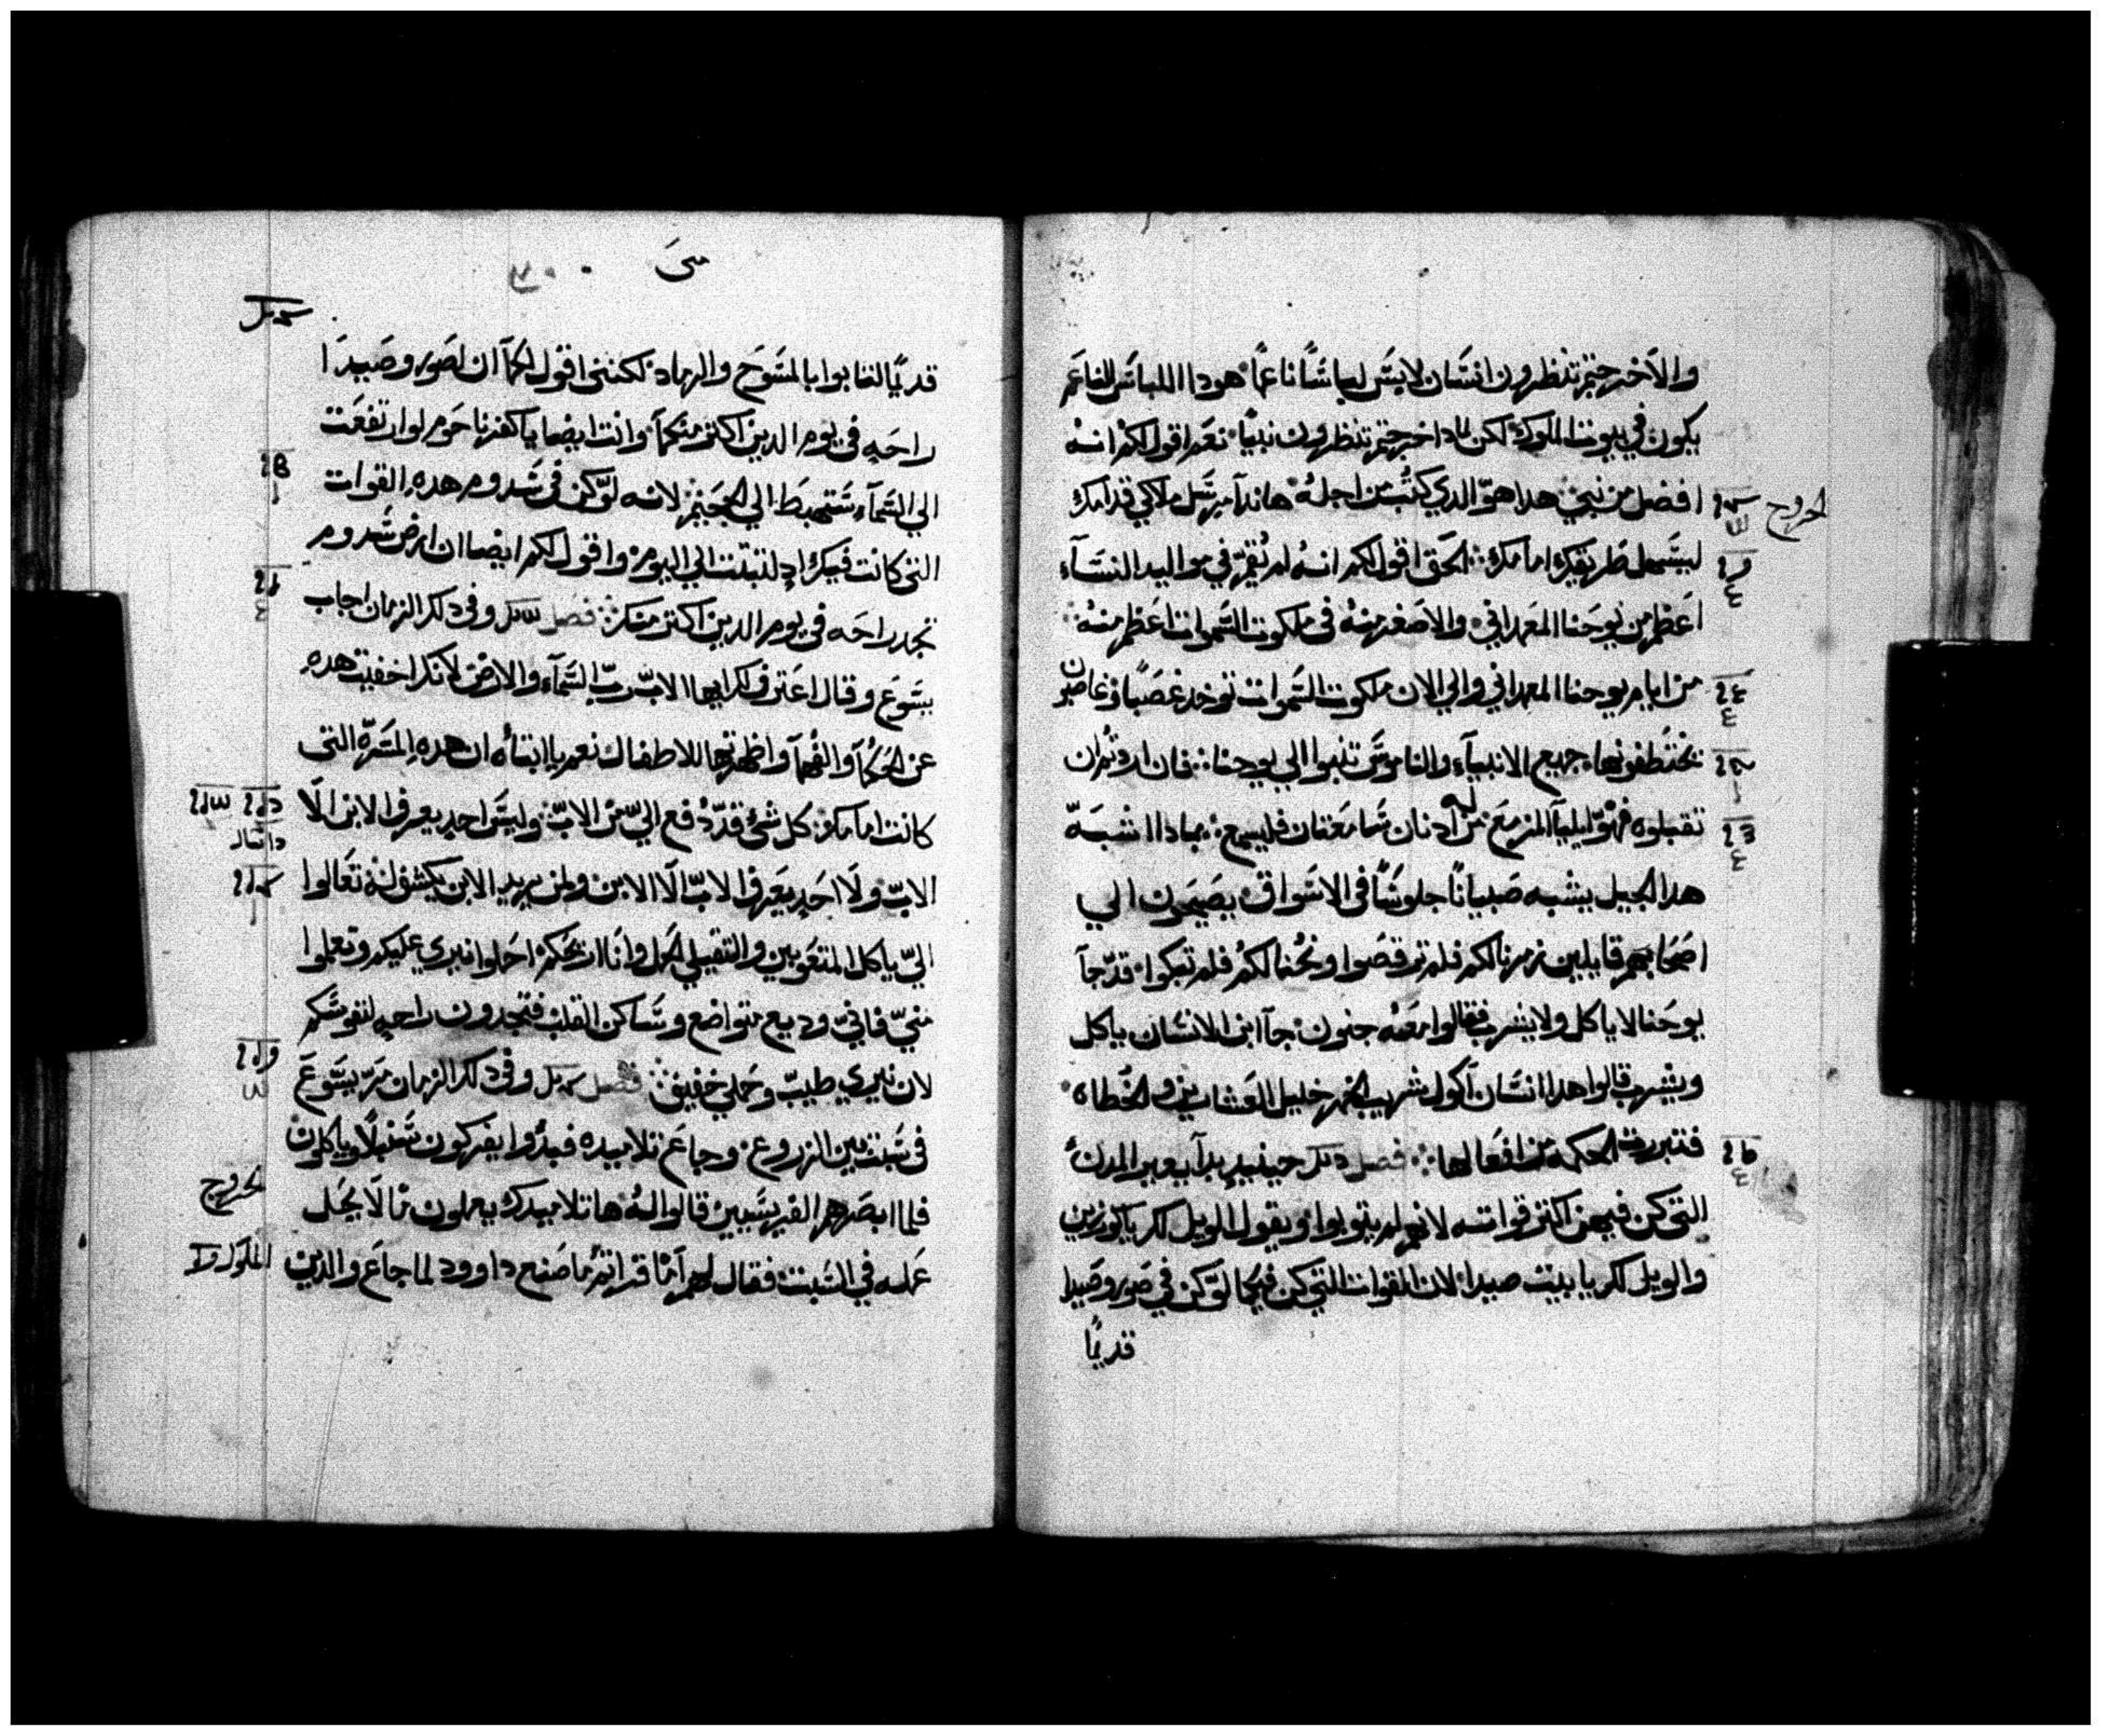 والآخرجتم تنظرون انسَان لابسَ لباسًا ناعمًا هودا اللباسَ الناعَم
يكون في بيوت الملوك لكن لمادا خرجتم تنظرون نبيًا نعَم اقول لكم انهُ
افضل من نبي هدا هوّ الدي كتُب من اجلهُ هاندآ مرسَل ملاكي قدامك
ليسَهل طريقك امامك الحق اقول لكم انهُ لم يُقمّ في مواليد النسَآء
اعَظم من يوحَنا المعَمداني والاصغر منهُ في ملكوت السَموات اعَظم منهُ
من ايام يوحنا المعمداني والي الان ملكوت السَموات توخد غصَبًا وغاصبون
يختطفونها جميع الانبيآء والناموسَ تنبوا الي يوحنا فان اردتم ان
تقبلوه فهوّ ايليآ المزمعَ من له ادنان سَامعَتان فليسمع بمادا اشبَهّ
هدا الجيل يشبه صَبيانًا جلوسًا في الاسَواق يصَيحَون الي
اصَحَابهم قايلين زمرنا لكم فلم ترقصَوا ونحُنا لكمُ فلم تبكوا قدّ جآ
يوحَنا لا ياكل ولا يشرب فقالوا معَهُ جنون جآ ابن الانسَان ياكل
ويشرب قالوا هدا انسَان آكول شريب الخمر خليل العَشارين والخَطاه
فتبررت الحكمه من افعَالها فصل حينيدٍ بدآ يعير المدنُ
التي كن فيهن اكتر قواته لانهم لم يتوبوا ويقول الويل لك يا كورزين
والويل لك يا بيت صيدا لان القوات التي كن فيكما لوّ كن في صَور وصَيدا
قديمًا
الخروج
متىَ
قديمًا لتابوا بالمسَوحَ والرماد لكنني اقول لكمآ ان لصَور وصَيدَا
راحَهٍ في يوم الدين اكتر منكمآ وانت ايضا يا كفرناحَوم لو ارتفعَت
الي السَمآء ستهبطَ الي الجحَيم لانه لوّ كن في سَدوم هدهِ القوات
التي كانت فيك ادٍ لتبتت الي اليوم واقول لكم ايضا ان ارض سَدوم
تجد راحَه في يوم الدين اكتر منك فصل وفي دلك الزمان اجاب
يسَوعَ وقال اعَترف لك ايها الابّ ربّ السَمآء والارض لانك اخفيت هدهِ
عن الحَكمآ والفُهمآ واظهرتها للاطفال نعم يا ابتاُه ان هدهِ المسَرهّ التي
كانت امامك كل شئ قدّ دُفع اليّ منَ الابّ وليسَ احدٍ يعرف الابن الّا
الابّ ولَا احَدٍ يعَرف الابّ الّا الابن ولمن يريد الابن يكشف لهُ تعَالوا
اليّ يا كل المتعَوبين والتقيلي الحَمل وانَا اريحَكم احَملوا نيري عليكم وتعلموا
منيّ فانيّ وديع متواضع وسَاكن القلب فتجدون راحهٍ لنفوسَكم
لان نيري طيبّ وحَملي خفيف فصل وفي دلك الزمان مَرّ يسَوعَ
في سَبت بين الزروعَ وجاعَ تلاميده فبدُوا يفركون سَنبلًا وياكلون
فلما ابصَرهم الفريسَيين قالوا لهُ ها تلاميدك يعملون مَا لَا يحَل
عمله في السَبت فقال لهم آمَا قراتم مَا صَنع داوود لما جاعَ والدين
الخروج
الملوك